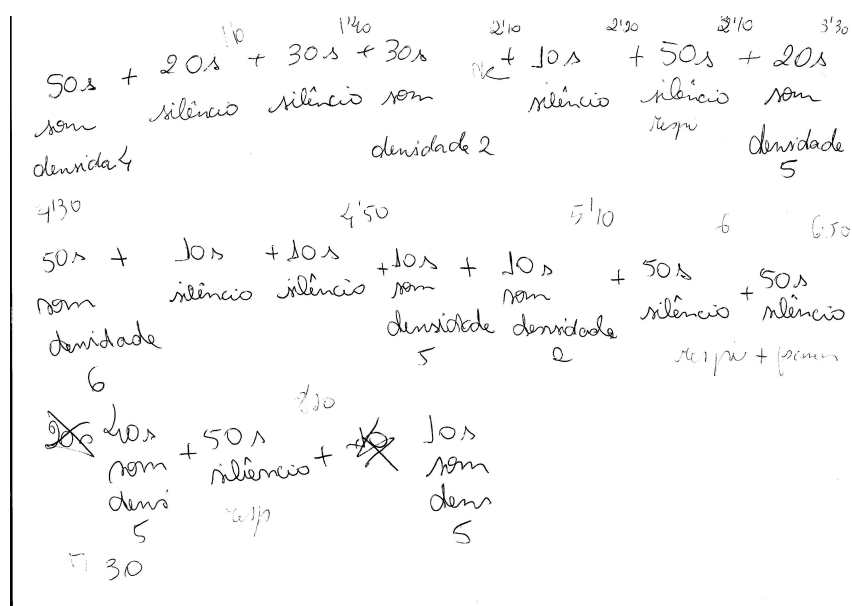 1'10 1'40 2'10 2'20 3'10 3'30
50s + 20s + 30s + 30s + 10s + 50s + 20s
som silêncio silêncio som silêncio silêncio som
respi
densida 4 densidade 2 densidade
5
4'30 4'50 5'10 6 6:50
50s + 10s + 10s + 10s + 10s + 50s + 50s
som silêncio silêncio som som silêncio silêncio
denidade densidade densidade
6 5 2 respi +
8'20
40s + 50s + 10s
som silêncio som
dens resp dens
5 5
30